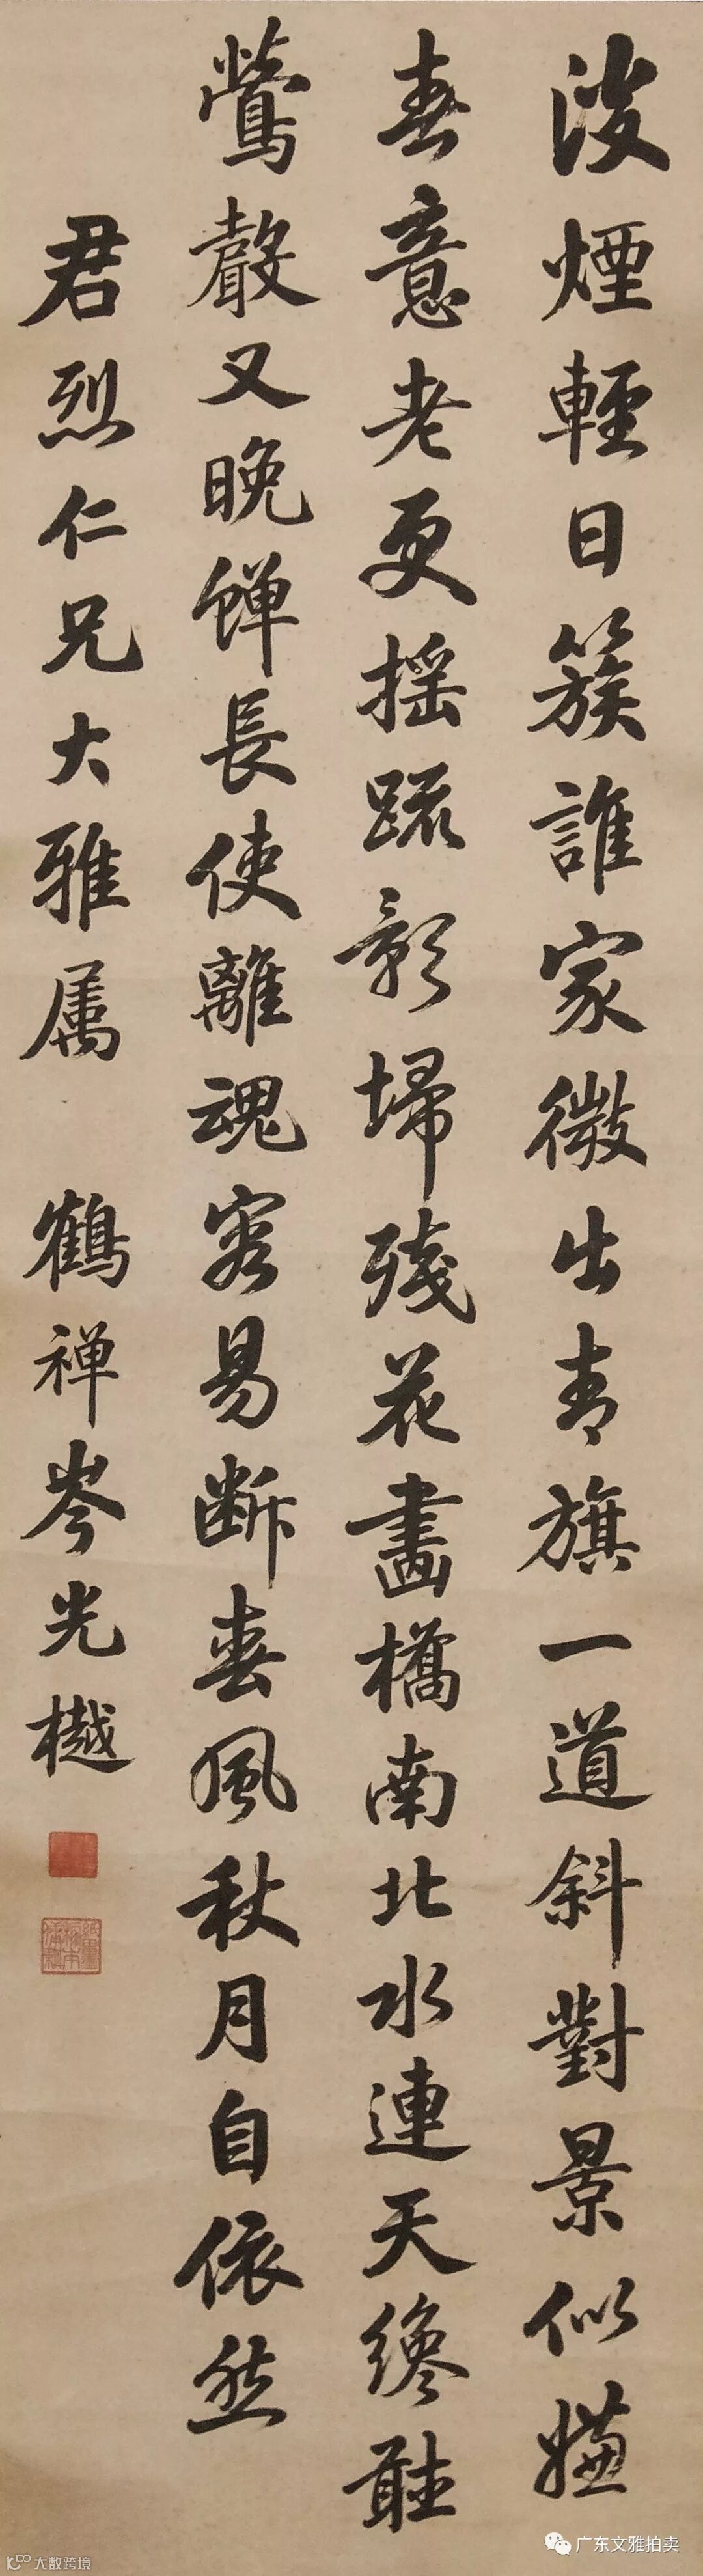 澹煙輕日簇誰家微出青旗一道斜對景似嫌
春意老更搖踈影埽殘花畫橋南北水連天纔聽
鶯聲又晚蟬長使離魂容易斷春風秋月自依然
君烈仁兄大雅属 鶴禅岑光樾
广东文雅拍卖
大数跨境